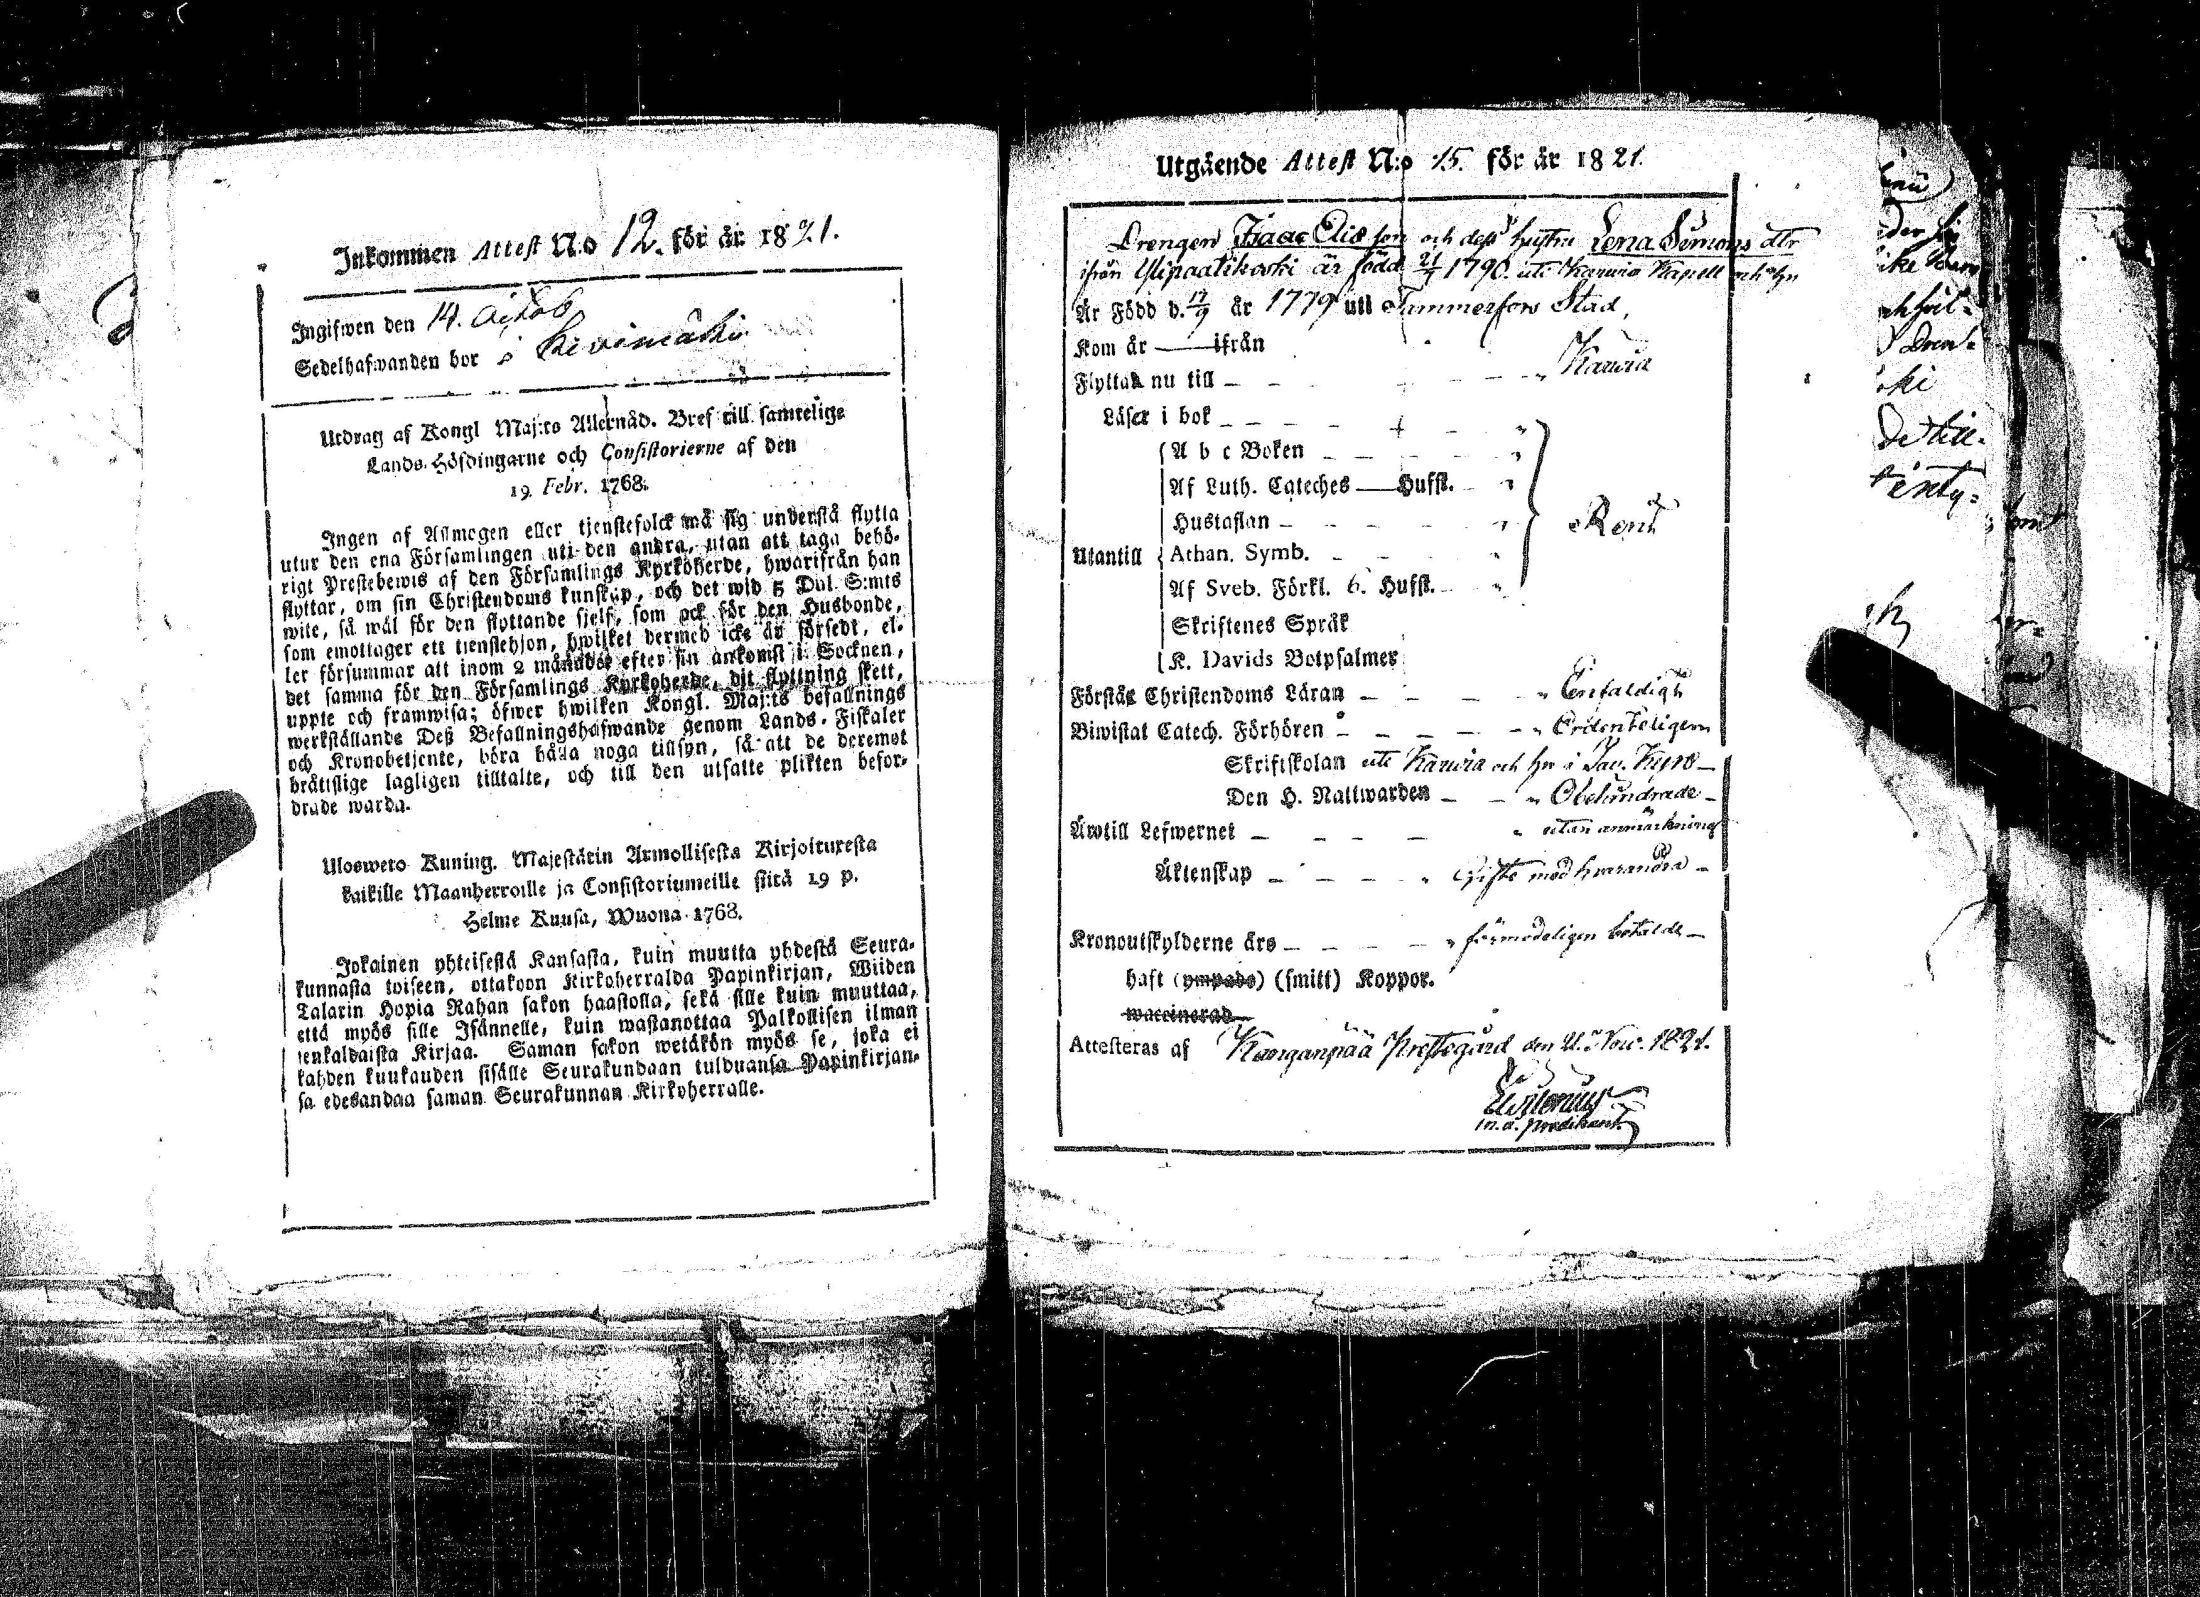 Inkommen Attest N:o 12. för år 1821.
Ingifwen den 14.
Sedelhafwanden bor i Kevimäki
Utdrag af Kongl Maj:ts Allernåd. Bref till samtelige
Lands-Höfdingarne och Consistorierne af den
19. Febr. 1768.
Ingen af Allmogen eller tjenstefolck må sig understå flytta
utur den ena Församlingen uti den andra, utan att taga behö-
rigt Prestebewis af den Församlings Kyrkoherde, hwarifrån han
flyttar, om sin Christendoms kunskap, och det wid 5 Dal. S:mts
wite, så wäl för den flyttande sjelf, som ock för den Husbonde,
som emottager ett tienstehjon, hwilket dermed icke är försedt, el-
ler försummar att inom 2 månader efter sin ankomst i Socknen,
det samma för den Församlings Kyrkoherde, dit flyttning skett,
uppte och framwisa; öfwer hwilken Kongl. Maj:ts befallnings
werkställande Deß Befallningshafwande genom Lands-Fiskaler
och Kronobetjente, böra hålla noga tillsyn, så att de deremot
brätislige lagligen tilltalte, och till den utsatte plikten befor-
drade warda.
Uloswetto Kuning. Majestätin Armollisesta Kirjoituxesta
kaikille Maanherroille ja Consistoriumeille siitä 19 p.
Helme Kuusa, Wuona 1768.
Jokainen yhteisestä Kansasta, kuin muutta yhdestä Seura-
kunnasta toiseen, ottakoon Kirkoherralda Papinkirjan, Wiiden
Talarin Hopia Rahan sakon haastolla, sekä sille kuin muuttaa,
että myös sille Isännelle, kuin wastanottaa Palkollisen ilman
senkaldaista Kirjaa. Saman sakon wetäkön myös se, joka ei
kahden kuukauden sisälle Seurakundaan tulduansa Papinkirjan-
sa edesandaa saman Seurakunnan Kirkoherralle.
Utgående Attest N:o 15. för år 1821.
Drengen Isaac Elis son och dess hustru Lena Simons dtr
ifrån Ylipaatikoski är född 21/7 1790. uti Karvia Kapell och hn
Är Född d. 17/9 år 1779 uti Tammerfors Stad,
Kom år — ifrån
Flyttar nu till — Karvia
Läser i bok
A b c Boken
Af Luth. Cateches — Hufst.
Hustaflan
Utantill Athan. Symb. Rent
Af Sveb. Förkl. 6. Hufst.
Skriftenes Språk
K. Davids Botpsalmer
Förstår Christendoms Läran — Enfaldigt
Biwistat Catech. Förhören — Ordenteligen
Skriftskolan uti Karvia och hn i Tav. Kyro —
Den H. Nattwarden — Obehindrade —
Ärtill Lefwernet — utan anmärkning
Äktenskap — Gifte med hvarandra —
Kronoutskylderne års — förmodeligen betalde —
haft (ympade) (smitt) Koppor.
waccinerad
Attesteras af Kanganpää Prestegård den 11. Nov. 1821.
m.a. predikant.